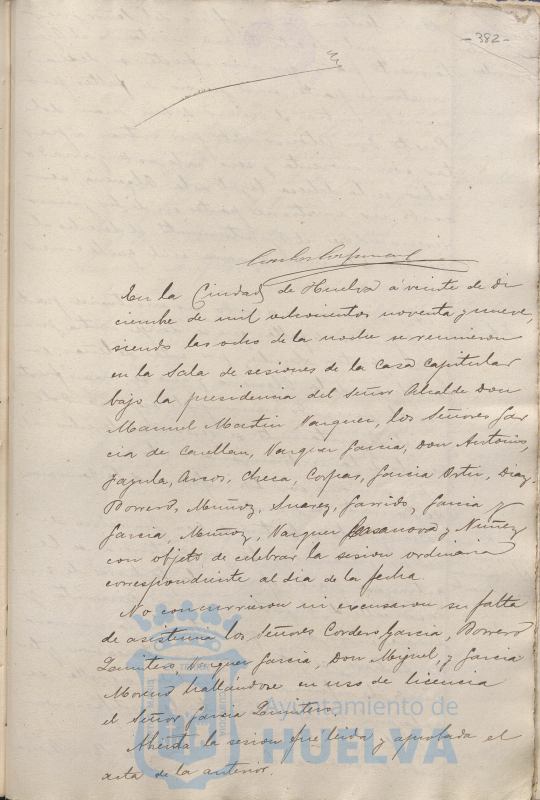 - 382 -
En la Ciudad de Huelva á veinte de di
ciembre de mil ochocientos noventa y nueve,
siendo las ocho de la noche se reunieron
en la Sala de sesiones de la casa capitular
bajo la presidencia del Señor Alcalde Don
Manuel Martin Vazquez, los Señores Gar
cia de Casellan, Vazquez Garcia, Don Antonio,
Zayula, Arcos, Checa, Corpas, Garcia Ortiz, Diaz,
Borrero, Muñoz, Suarez, Garrido, Garcia y
Garcia, Muñoz, Vazquez Casanova y Nuñez
con objeto de celebrar la sesion ordinaria
correspondiente al dia de la fecha
No concurrieron ni excusaron su falta
de asistencia los Señores Cordero Garcia, Borrero
Quintero, Vazquez Garcia, Don Miguel, y Garcia
Moreno hallándose en uso de licencia
el Señor Garcia Quintero.
Abierta la sesion fue leida y aprobada el
acta de la anterior.
Ayuntamiento de
HUELVA